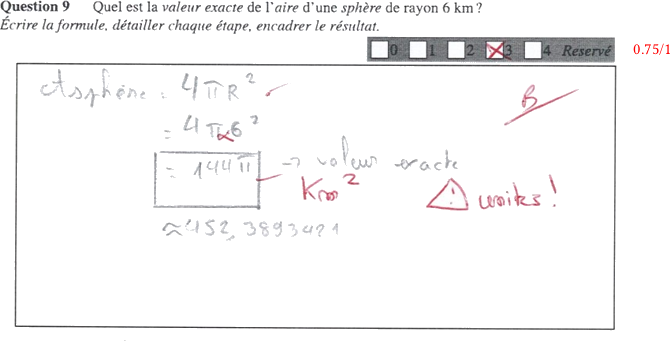 Question 9 Quel est la valeur exacte de l'aire d'une sphère de rayon 6 km ?
Écrire la formule, détailler chaque étape, encadrer le résultat.
0 1 2 3 4 Reservé 0.75/1
Asphère = 4πR²
B
= 4π×6²
= 144π → valeur exacte
Km²
⚠ units!
≈452,3893421